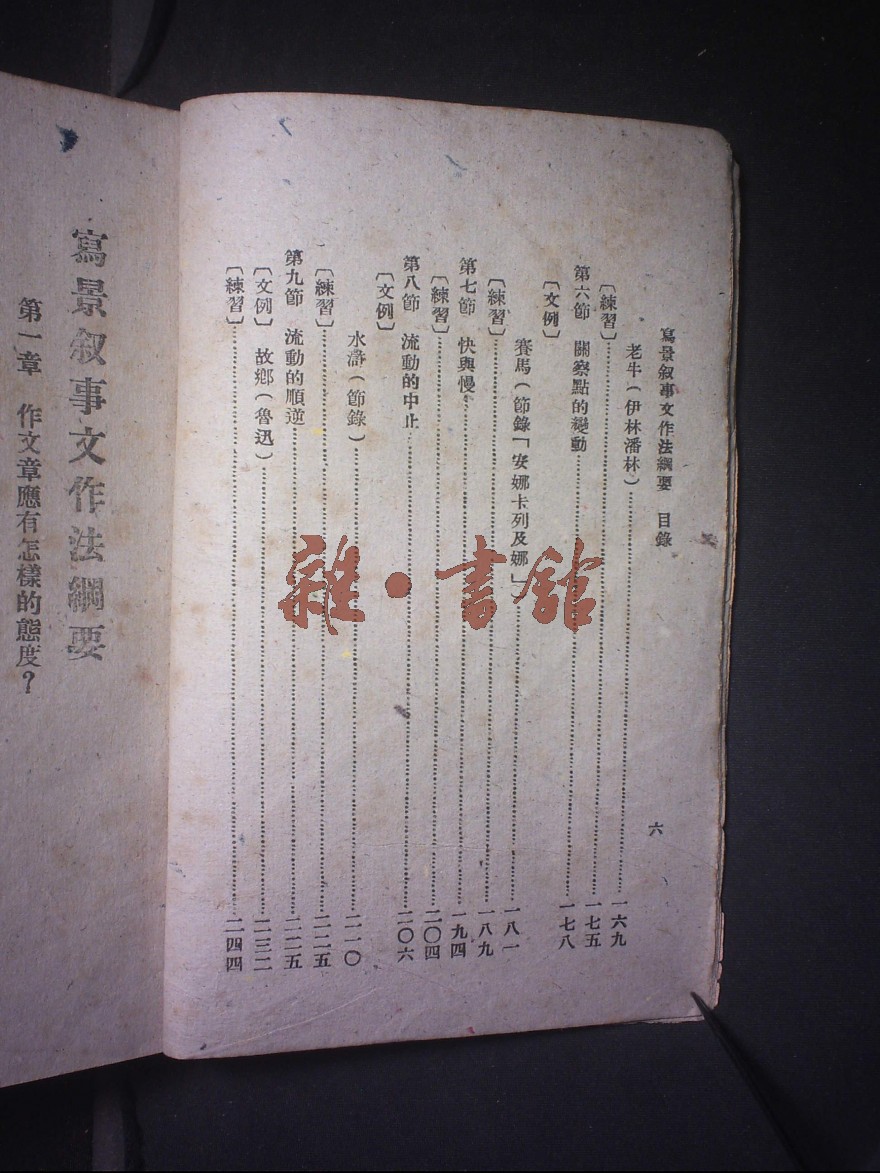 寫景叙事文作法綱要 目錄 六
老牛（伊林潘林）……一六九
〔練習〕……一七五
第六節 觀察點的變動……一七八
〔文例〕
賽馬（節錄「安娜卡列及娜」）……一八一
〔練習〕……一八九
第七節 快與慢……一九四
〔練習〕……二〇四
第八節 流動的中止……二〇六
〔文例〕
水滸（節錄）……二一〇
〔練習〕……二二五
第九節 流動的順逆……二二五
〔文例〕 故鄉（魯迅）……二三二
〔練習〕……二四四
寫景叙事文作法綱要
第一章 作文章應有怎樣的態度？
雜·書館